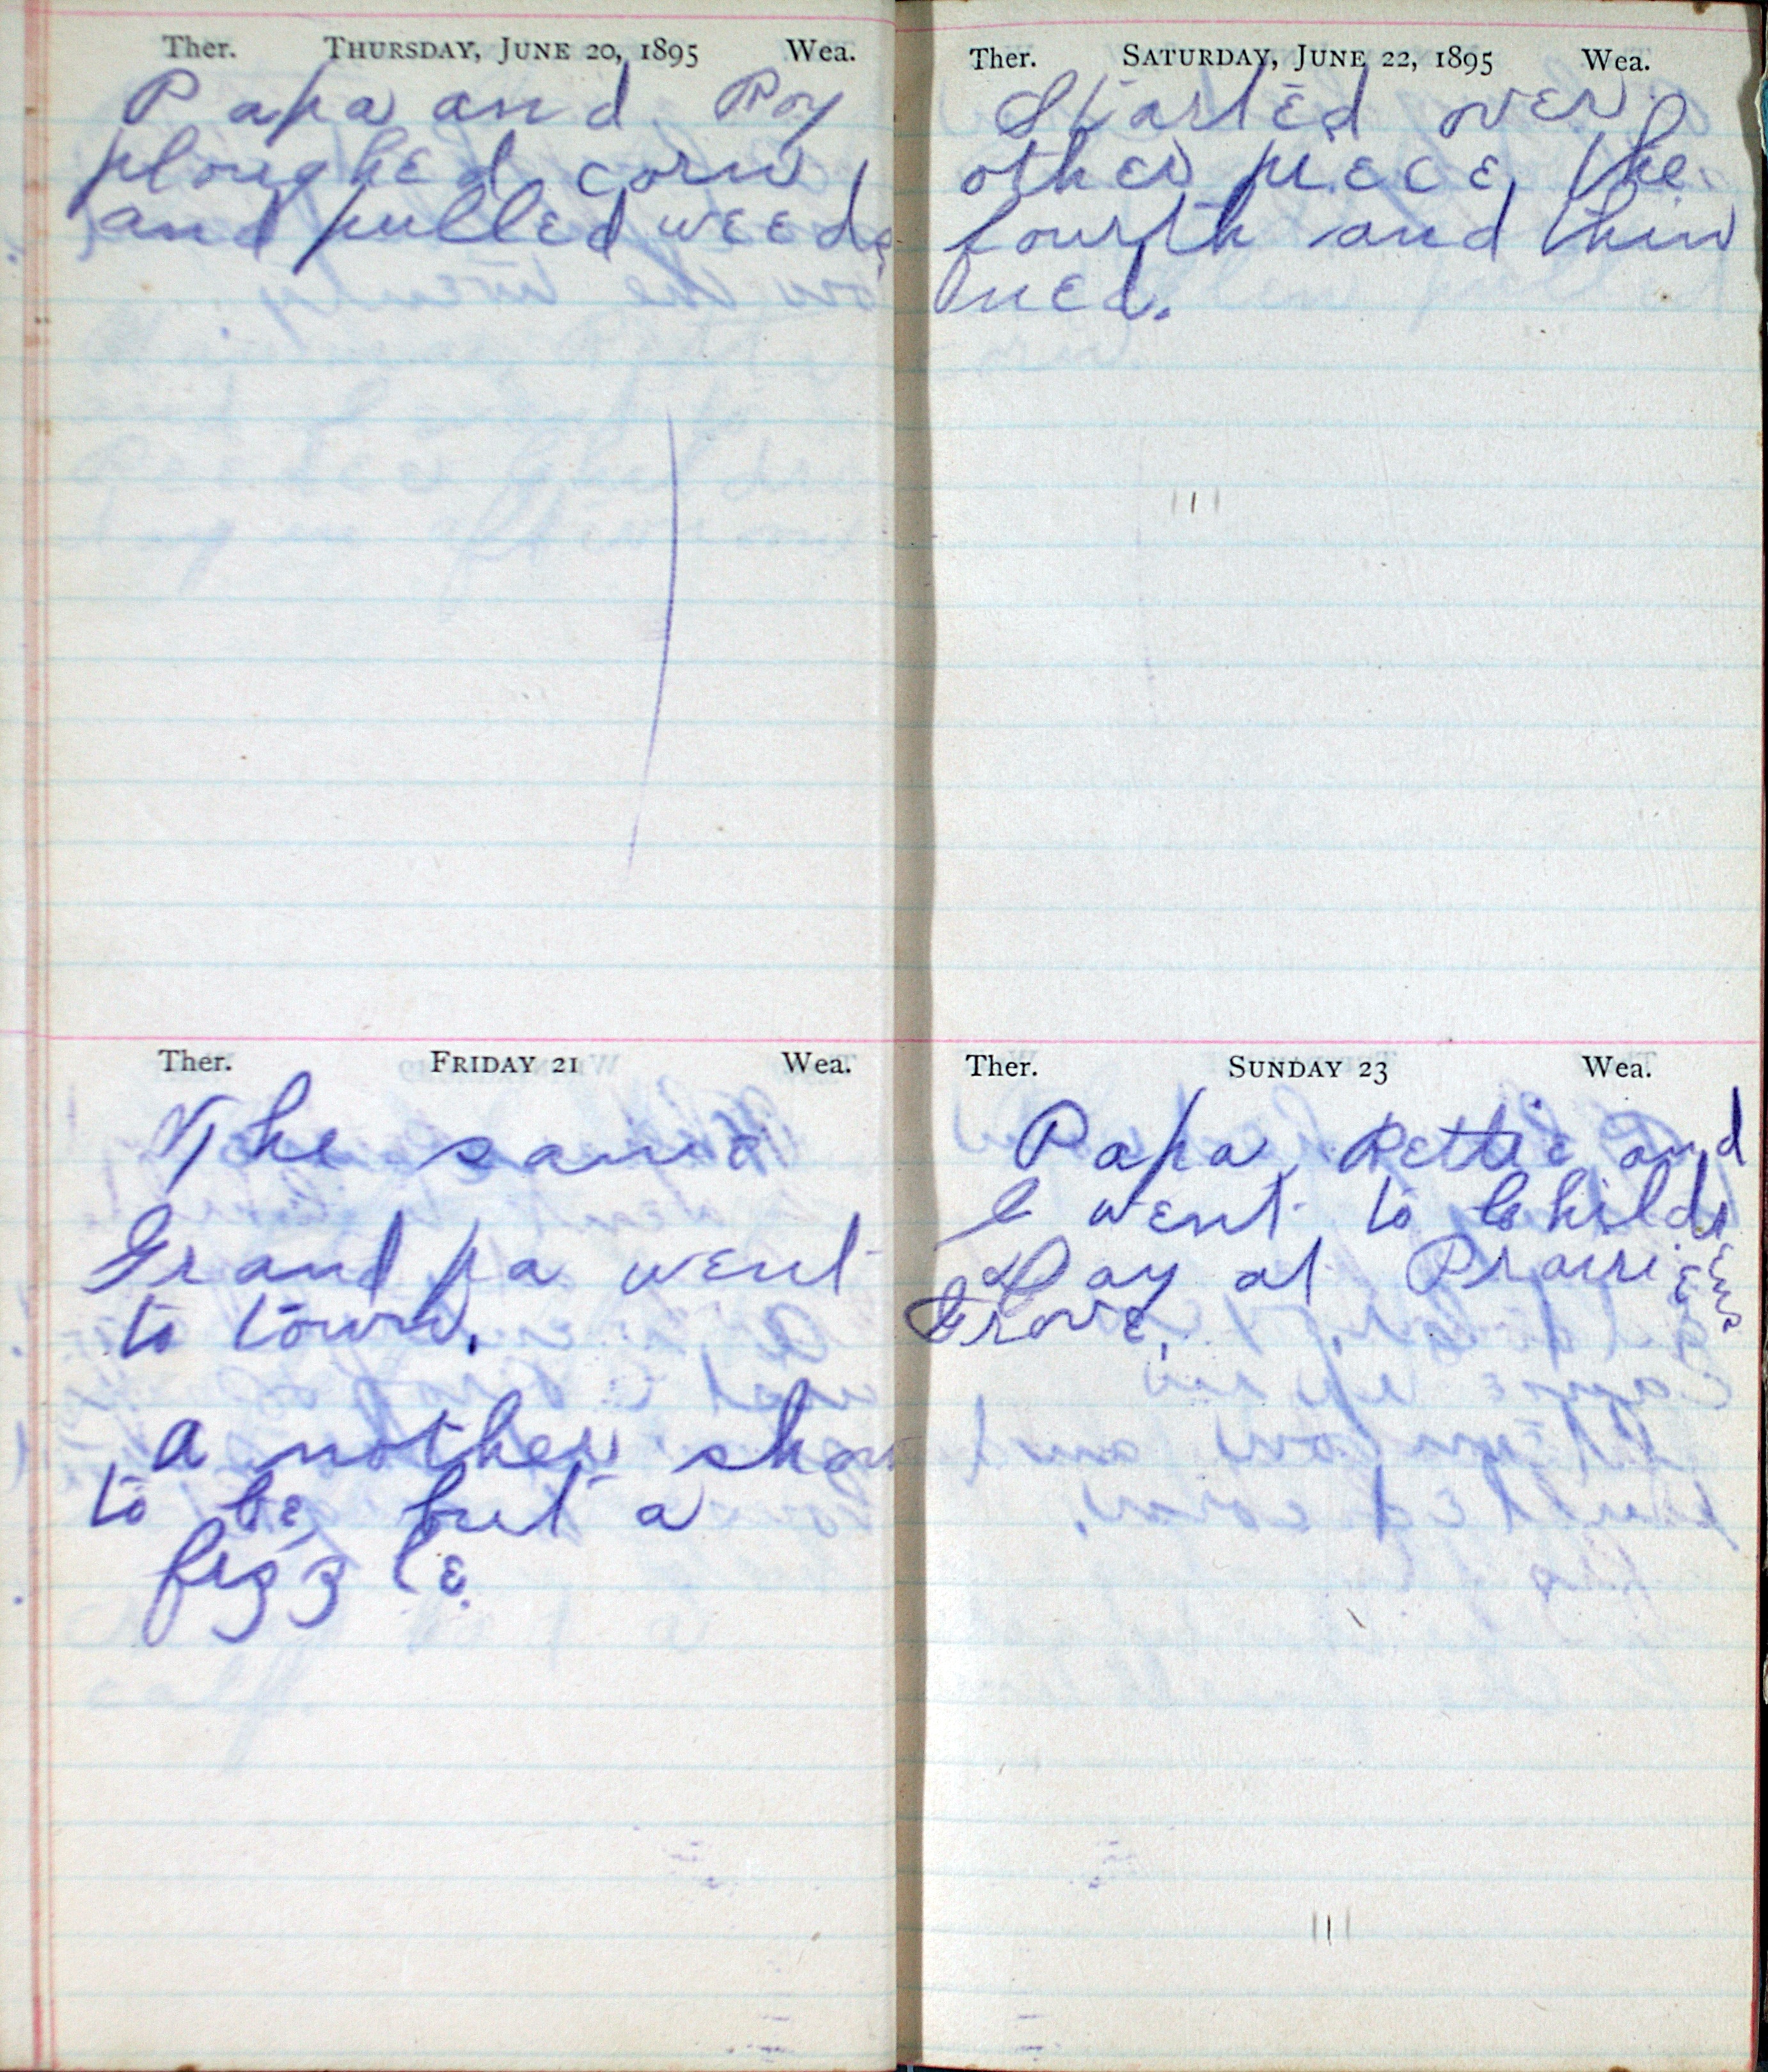 Ther. THURSDAY, JUNE 20, 1895 Wea.
Papa and Roy
ploughed corn
and pulled weeds
Ther. FRIDAY 21 Wea.
The same
Grandpa went
to town.
a nother show
to be, but a
fizzle.
Ther. SATURDAY, JUNE 22, 1895 Wea.
Started over
other piece, the
fourth and thin
ned.
Ther. SUNDAY 23 Wea.
Papa, Rettie and
I went to Childrens
Day at Prairie
Grove.